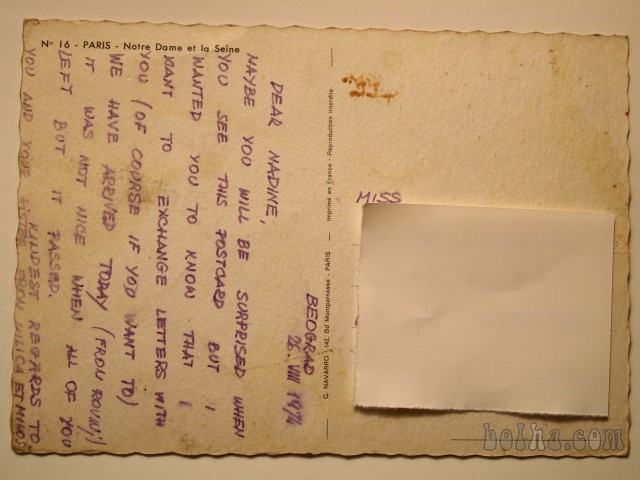 Nº 16 - PARIS - Notre Dame et la Seine
BEOGRAD
26. VIII 1974
DEAR NADINE,
MAYBE YOU WILL BE SURPRISED WHEN
YOU SEE THIS POSTCARD BUT I
WANTED YOU TO KNOW THAT I
WANT TO EXCHANGE LETTERS WITH
YOU (OF COURSE IF YOU WANT TO)
WE HAVE ARRIVED TODAY (FROM ROVINJ)
IT WAS NOT NICE WHEN ALL OF YOU
LEFT BUT IT PASSED.
KINDEST REGARDS TO
YOU AND YOUR SISTER FROM MILICA ET
G. NAVARRO - 142, Bd Montparnasse - PARIS
Imprimé en France - Reproduction interdite
MISS
bolha.com